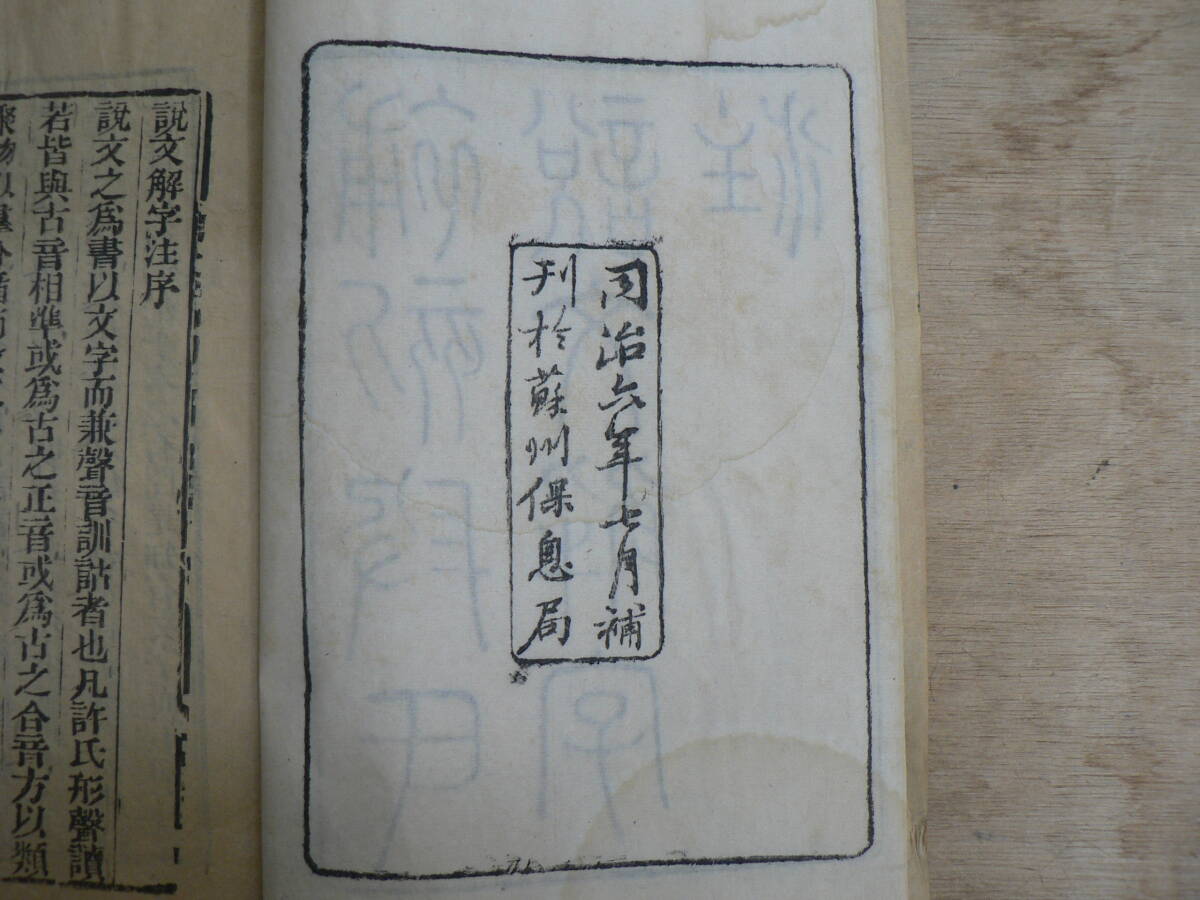 同治六年七月補
刊於蘇州保息局
說文解字注序
說文之爲書以文字而兼聲音訓詁者也凡許氏形聲讀
若皆與古音相準或爲古之正音或爲古之合音方以類
聚物以羣分循而